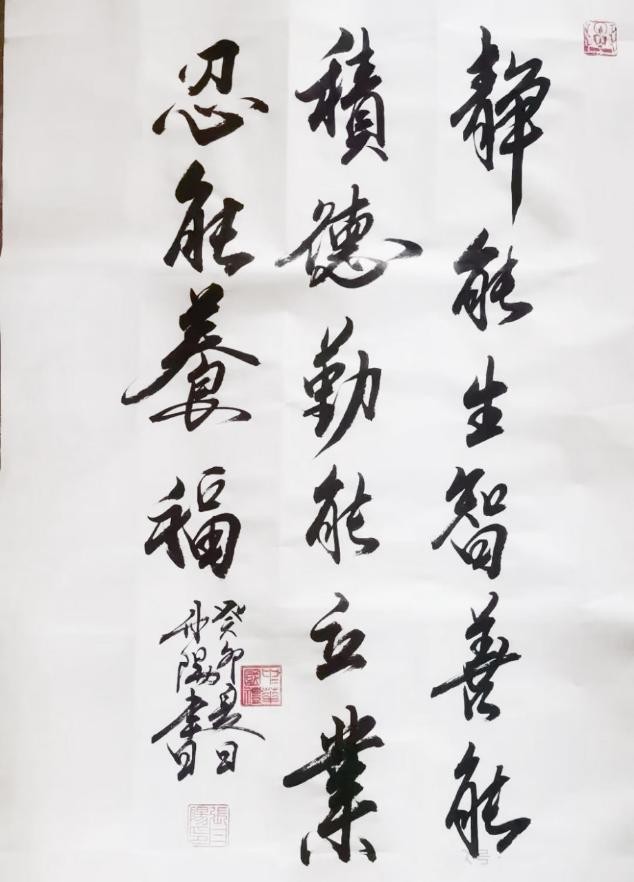 静能生智善能
積德勤能立業
忍能養福
癸卯夏日
丹陽書